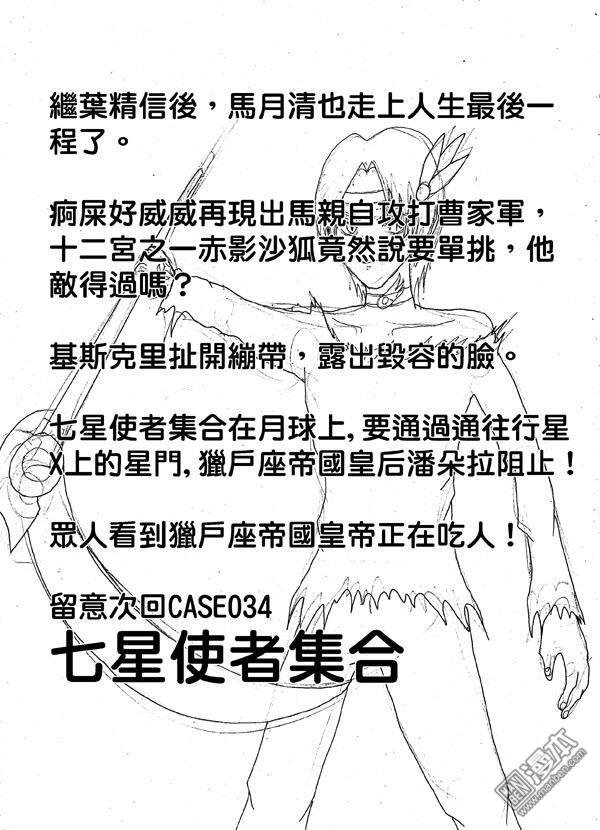 繼葉精信後，馬月清也走上人生最後一
程了。
痾屎好威威再現出馬親自攻打曹家軍，
十二宮之一赤影沙狐竟然說要單挑，他
敵得過嗎？
基斯克里扯開繃帶，露出毀容的臉。
七星使者集合在月球上,要通過通往行星
X上的星門,獵戶座帝國皇后潘朵拉阻止！
眾人看到獵戶座帝國皇帝正在吃人！
留意次回CASE034
七星使者集合
漫本
www.manben.com